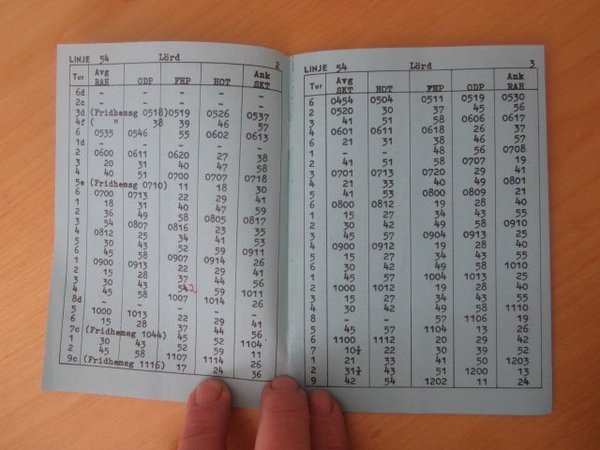 LINJE 54 Lörd 2
Tur Avg RAH ODP FHP HOT Ank SKT
6d - - - - -
2c - - - - -
3d (Fridhemsg 0518) 0519 0526 0537
4f ( " 38 39 46 57
6 0535 0546 55 0602 0613
1d - - - - -
2 0600 0611 0620 27 38
3 20 31 40 47 58
4 40 51 0700 0707 0718
5e (Fridhemsg 0710) 11 18 30
6 0700 0713 22 29 41
1 18 31 40 47 59
2 36 49 58 0805 0817
3 54 0807 0816 23 35
4 0812 25 34 41 53
5 30 43 52 59 0911
6 45 58 0907 0914 26
1 0900 0913 22 29 41
2 15 28 37 44 56
3 30 43 52 59 1011
4 45 58 1007 1014 26
8d - - - - -
5 1000 1013 22 29 41
6 15 28 37 44 56
7c (Fridhemsg 1044) 45 52 1104
1 30 43 52 59 11
2 45 58 1107 1114 26
9c (Fridhemsg 1116) 17 24 36
LINJE 54 Lörd 3
Tur Avg SKT HOT FHP ODP Ank RAH
6 0454 0504 0511 0519 0530
2 0520 30 37 45 56
3 41 51 58 0606 0617
4 0601 0611 0618 26 37
6 21 31 38 46 57
1 - - 48 56 0708
2 41 51 58 0707 19
3 0701 0713 0720 29 41
4 21 33 40 49 0801
5 41 53 0800 0809 21
6 0800 0812 19 28 40
1 15 27 34 43 55
2 30 42 49 58 0910
3 45 57 0904 0913 25
4 0900 0912 19 28 40
5 15 27 34 43 55
6 30 42 49 58 1010
1 45 57 1004 1013 25
2 1000 1012 19 28 40
3 15 27 34 43 55
4 30 42 49 58 1110
8 - - 57 1106 19
5 45 57 1104 13 26
6 1100 1112 20 29 42
7 10½ 22 30 39 52
1 21 33 41 50 1203
2 31½ 43 51 1200 13
9 42 54 1202 11 24